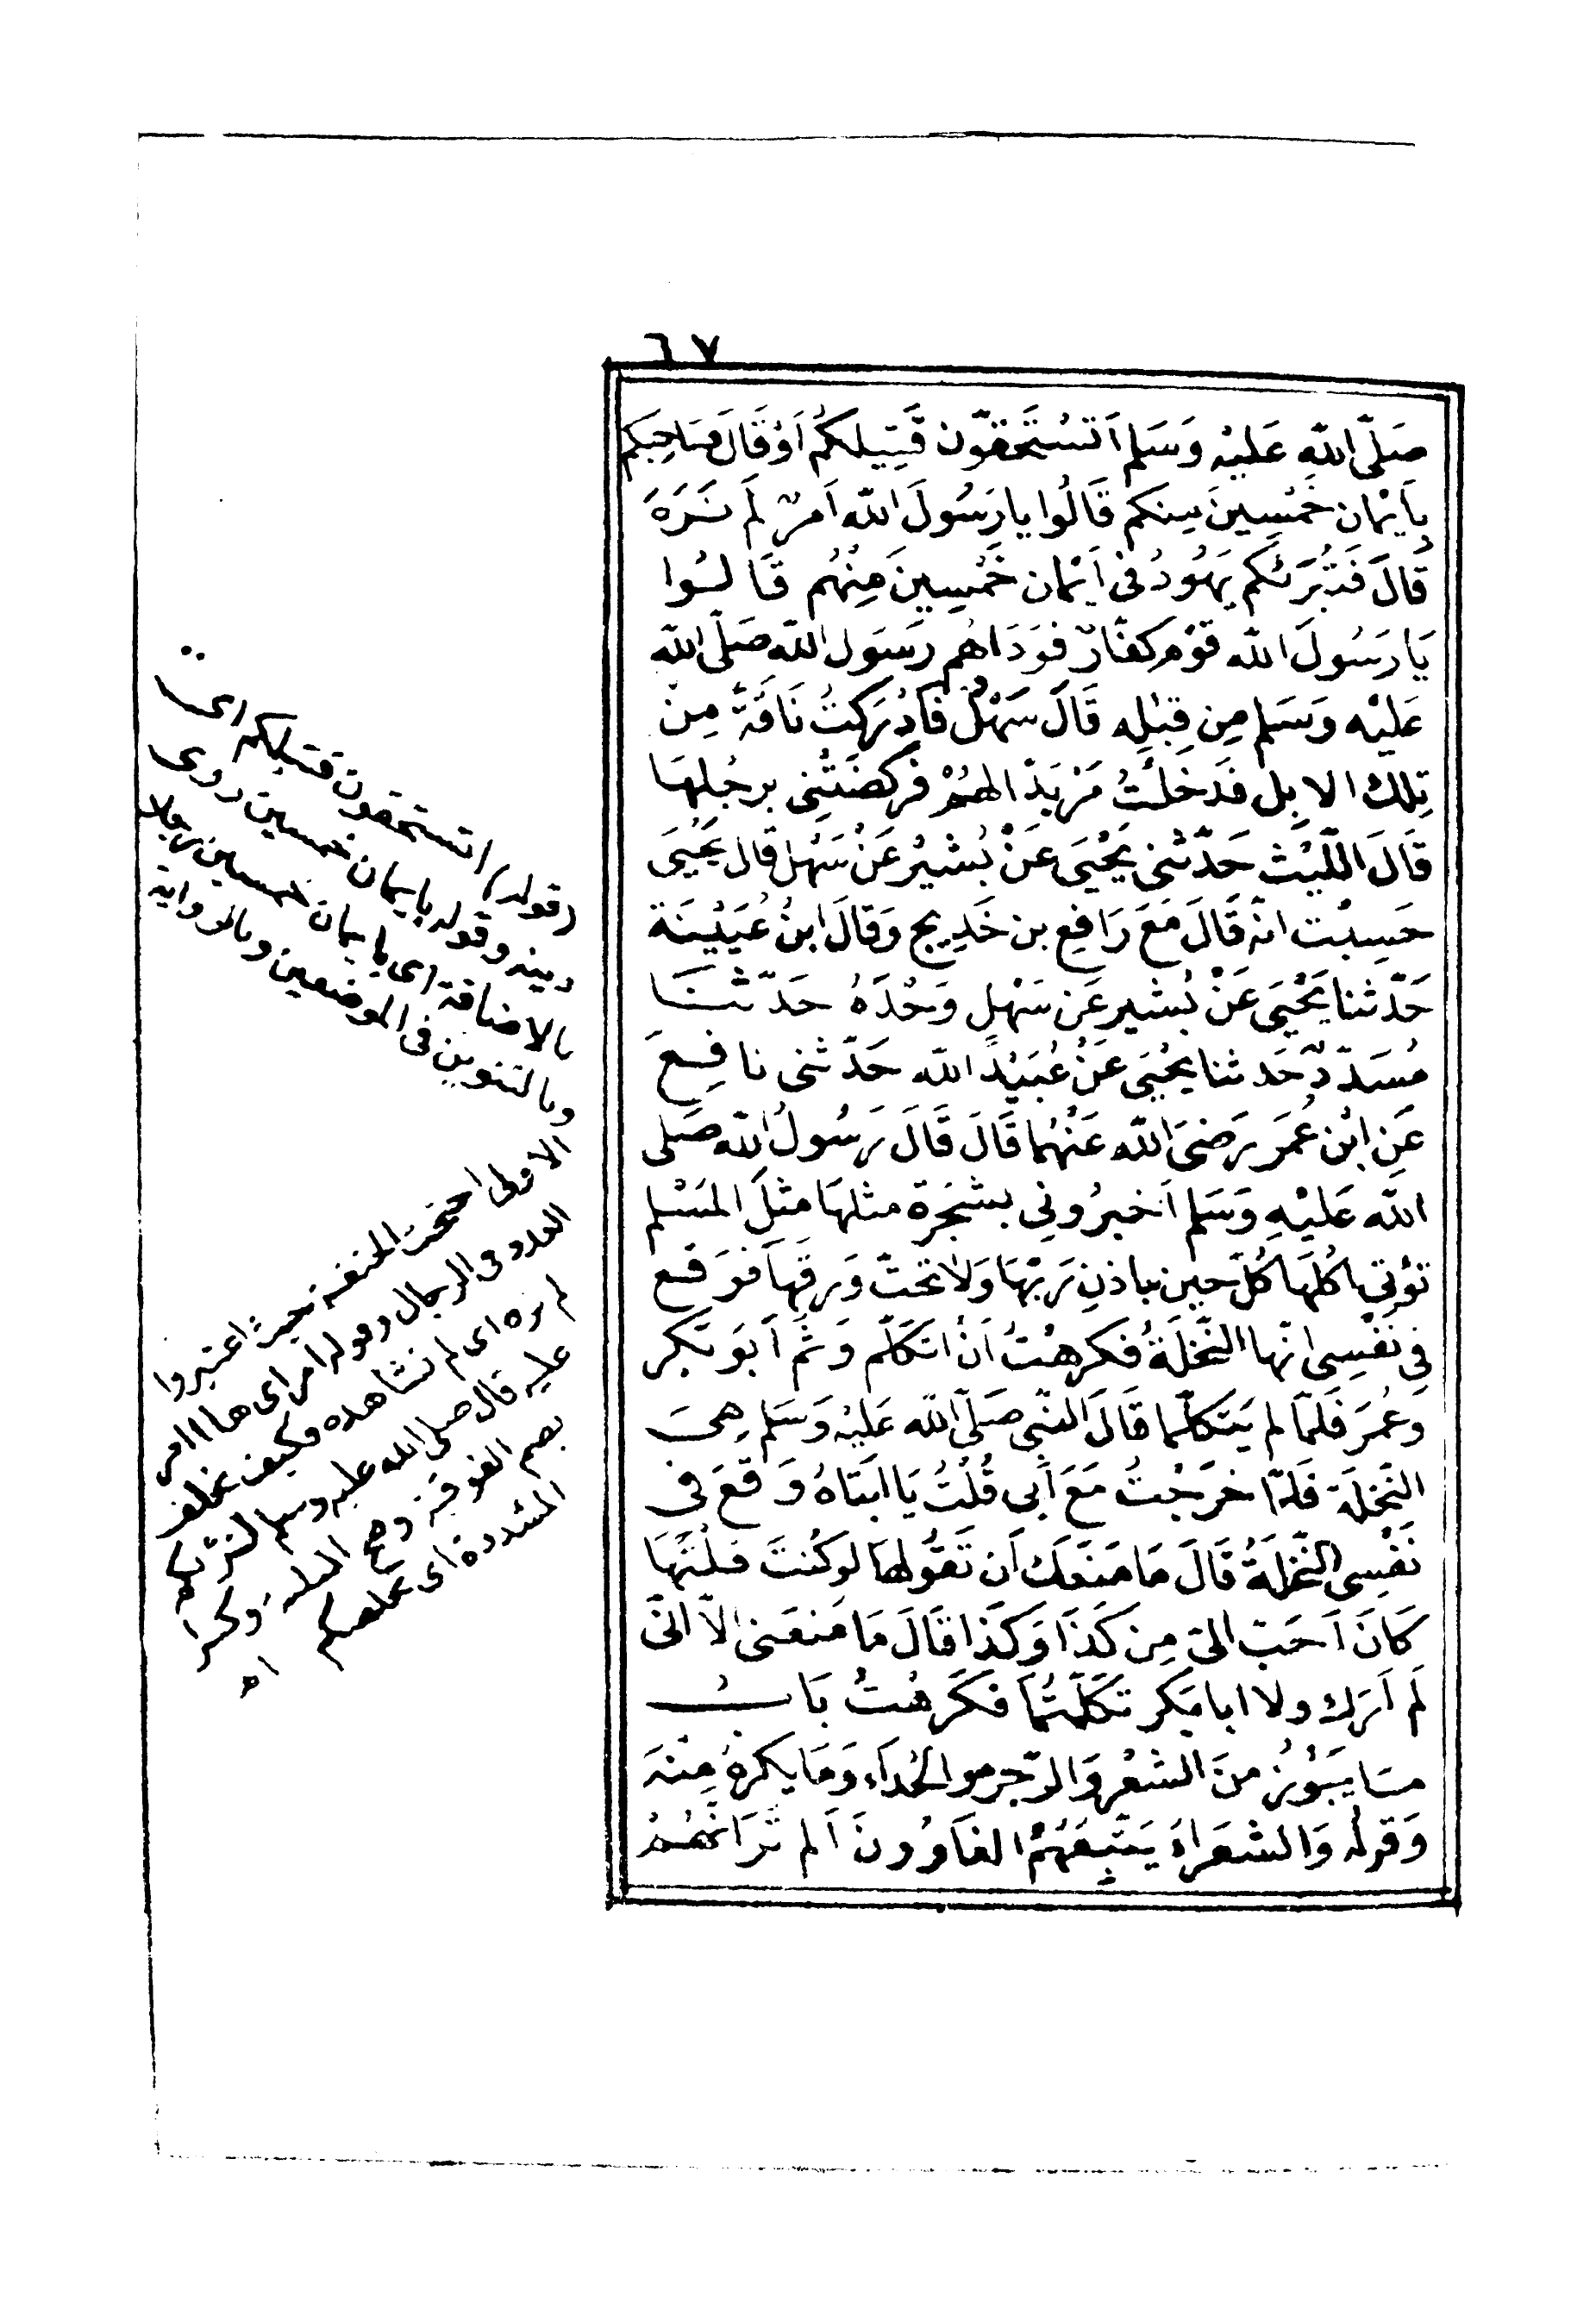 ٦٧
صَلَّى اللّٰه عَلَيْه وَسَلم اَتَسْتَحَقّون قَتِيلكُمْ اَوْ قَالَ صَاحِبكم
بِاَيْمان خَمْسِينَ منكم قَالُوا يا رَسُولَ اللّٰه اَمرٌ لَم نَرَهُ
قَالَ فَتُبْرَئكم يَهُودُ فى اَيْمان خَمْسِينَ مِنْهُم قَالُوا
يَا رَسُولَ اللّٰه قَوْم كفّارٌ فوَدَاهُم رَسَول اللّٰه صَلَّى اللّٰه
عَلَيْه وَسَلم مِن قِبَلِه قَالَ سَهْلٌ فاَدْرَكتُ نَاقَةً مِنْ
تِلك الابِل فَدَخَلَتْ مَرْبَدًا لهُمْ فَركضَتْنِى برجْلِهَا
قَالَ اللَّيْث حَدّثنى يَحْيَى عَنْ بُشَيْر عَنْ سَهْل قال يَحْيَى
حَسِبْت انّه قَالَ مَعَ رَافِع بن خَدِيج وَقالَ ابنُ عُيَيْنَة
حَدّثنا يَحْيَى عَنْ بُشَير عَن سَهْلٍ وَحْدَهُ حَدّثنَا
مُسَدّدٌ حَدثنا يَحْيَى عَنْ عُبَيْد اللّٰه حَدّثنى نافِع
عَنِ ابْن عُمَر رَضىَ اللّٰه عَنْهُما قَالَ قَالَ رَسُولُ اللّٰه صَلى
اللّٰه عَلَيْهِ وَسَلم اَخبرُونى بشَجَرة مثلهَا مَثلَ المسْلم
تؤتى اكُلهَا كُلّ حِين باذنِ رَبّهَا وَلا تحتّ وَرقهَا فَوَقع
فى نَفْسِى انّها النَّخلَةُ فكرهْتُ اَنْ اتكَلّم وَثَمّ اَبوَ بَكر
وعُمَرَ فَلمّا لم يَتَكلَّما قَالَ النّبى صَلَّى اللّٰه عَلَيْه وَسَلم هِىَ
النَّخلَة فَلمّا خرَجْتُ مَعَ اَبى قُلْتُ يَا ابَتَاهُ وَقَعَ فى
نَفْسِى النَّخلَةُ قَالَ مَا مَنَعَك اَن تَقُولهَا لو كُنتَ قلْتَهَا
كَانَ اَحَبّ الىّ مِن كَذَا وَكَذا قَالَ مَا مَنعَنى الاّ انّى
لَم اَرَك ولا ابا بَكر تَكَلَّمْتُما فَكَرهْتُ بَابُ
مَا يَجُوزُ منَ الشعْر وَالرّجز والحُدَاءِ وَمَا يكرهُ مِنْهُ
وَقولهُ وَالشعَراءُ يَتّبعُهُمُ الغَاوُونَ اَلم تَرَ انّهُمْ
(قوله) اتستحقون قتيلكم اى
ديته وقوله بايمان خمسين روى
بالاضافة اى بايمان خمسين رجلا
وبالتنوين فى الموضعين وبالرواية
الاولى احتجت الحنفية حيث اعتبروا
العدد فى الرجال وقوله امر اى هذا امر
لم نره اى لم نشاهده فكيف نحلف
عليه قال صلى الله عليه وسلم فتبرئكم
بضم الفوقية وفتح الموحدة وكسر الراء
المشددة اى تخلصكم اه